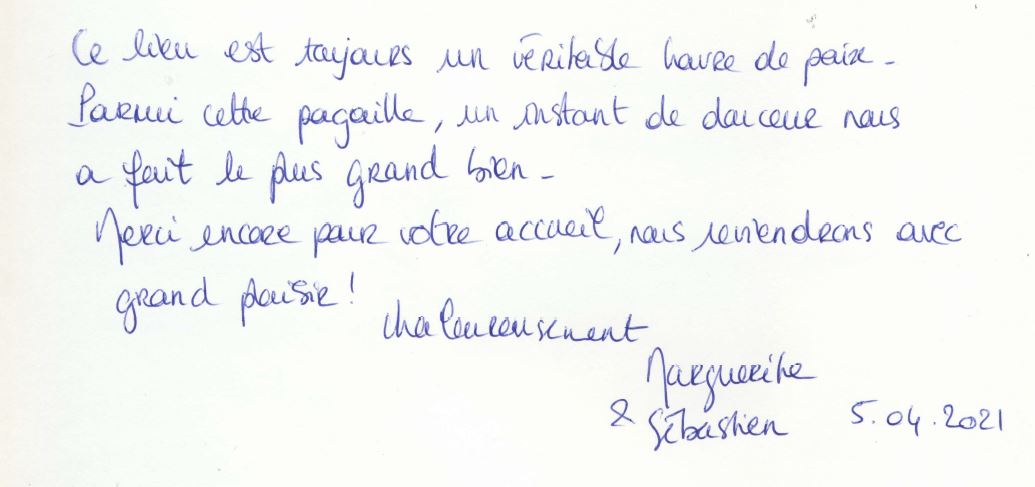 Ce lieu est toujours un véritable havre de paix.
Parmi cette pagaille, un instant de douceur nous
a fait le plus grand bien.
Merci encore pour votre accueil, nous reviendrons avec
grand plaisir !
Chaleureusement
Marguerite
& Sébastien 5.04.2021